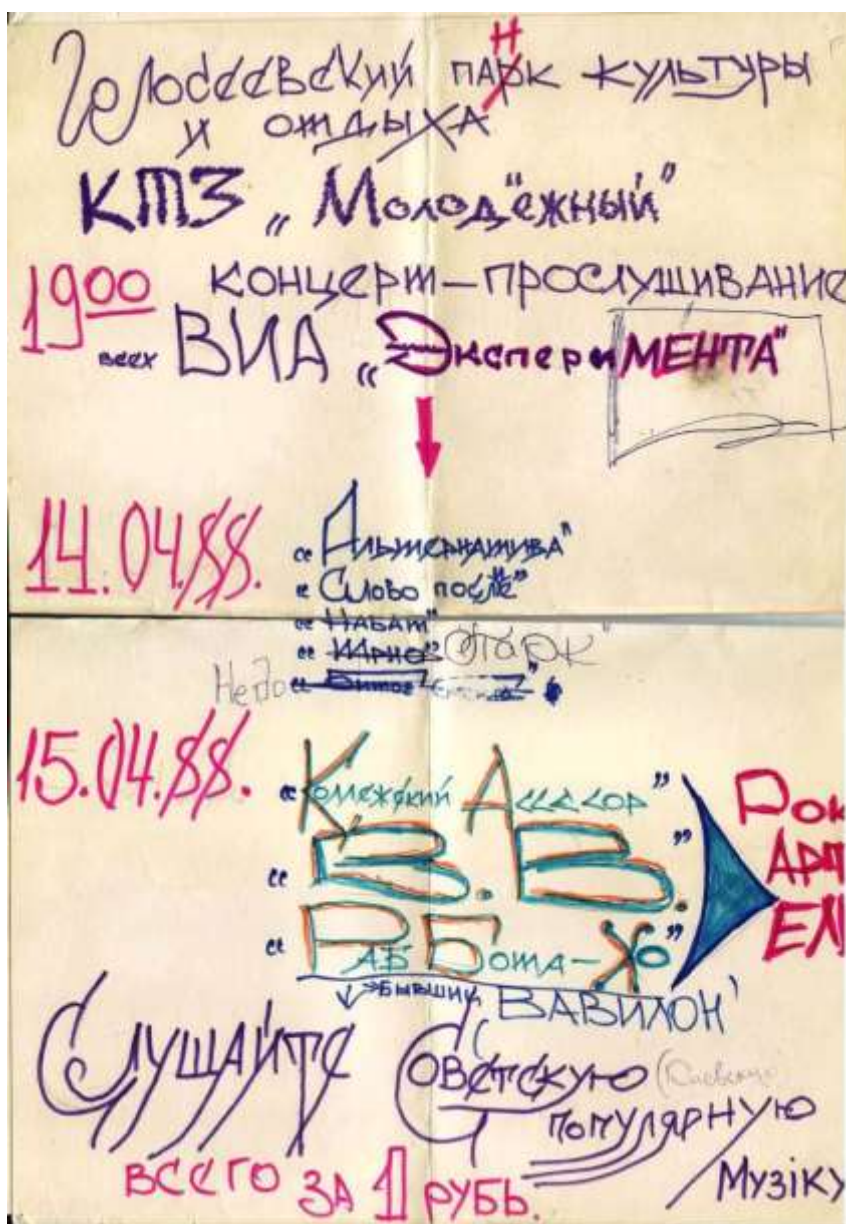 Голосеевский парк культуры
Н
и отдыха
КТЗ „Молодёжный"
19 00 концерт-прослушивание
всех ВИА „ЭкспериМЕНТА"
14.04.88.
„Альтернатива"
„Слово после"
„Набат"
Старк"
Недо
15.04.88.
„Коллежский Ассесор"
„В.В."
„Раб Бота-Хо"
Рок
АРТ
ЕЛ
бывший ВАВИЛОН'
Слушайте Советскую (Киевскую)
популярную
Музіку
всего за 1 рубь.